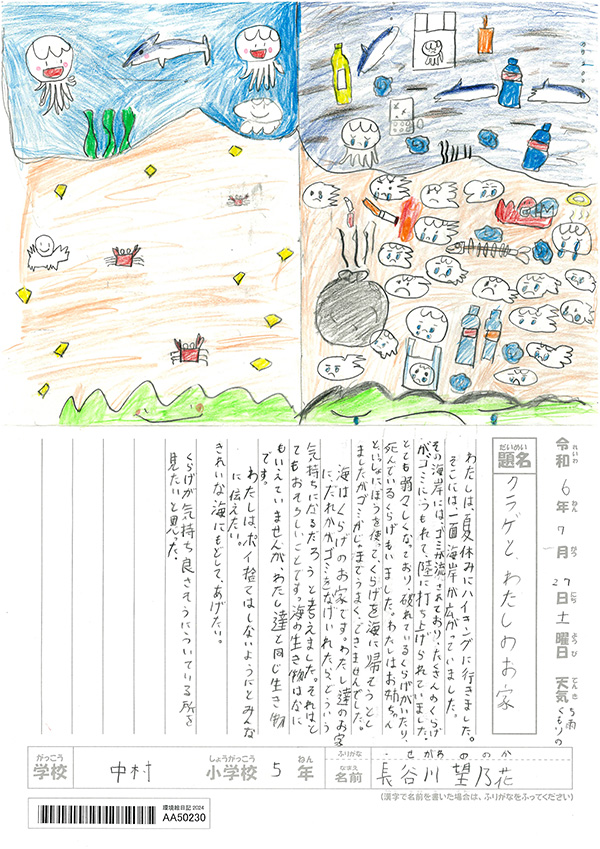 令和6年7月27日土曜日 天気 くもりのち雨
れいわ ねん がつ にち ようび てんき
だいめい
題名 クラゲと、わたしのお家
わたしは、夏休みにハイキングに行きました。
そこには、一面海岸が広がっていました。
その海岸には、ゴミが流されており、たくさんのくらげ
が、ゴミにうもれて、陸に打ち上げられていました。
とても弱々しくなっており、破れているくらげがいたり
死んでいるくらげもいました。わたしはお姉ちゃん
といっしょにぼうを使って、くらげを海に帰そうとし
ましたがゴミがじゃまでうまくできませんでした。
海はくらげのお家です。わたし達のお家
にだれかがゴミをなげいれたら、どういう
気持ちになるだろうと考えました。それはと
てもおそろしいことです。海の生き物はなに
もいえていませんが、わたし達と同じ生き物
です。
わたしは、ポイ捨てはしないようにとみんな
に伝えたい。
きれいな海にもどして、あげたい。
くらげが気持ち良さそうにういている所を
見たいと思った。
がっこう しょうがっこう ねん ふりがな はせがわ ののか
学校 中村 小学校 5年 なまえ 名前 長谷川 望乃花
(漢字で名前を書いた場合は、ふりがなをふってください)
環境絵日記2024
AA50230